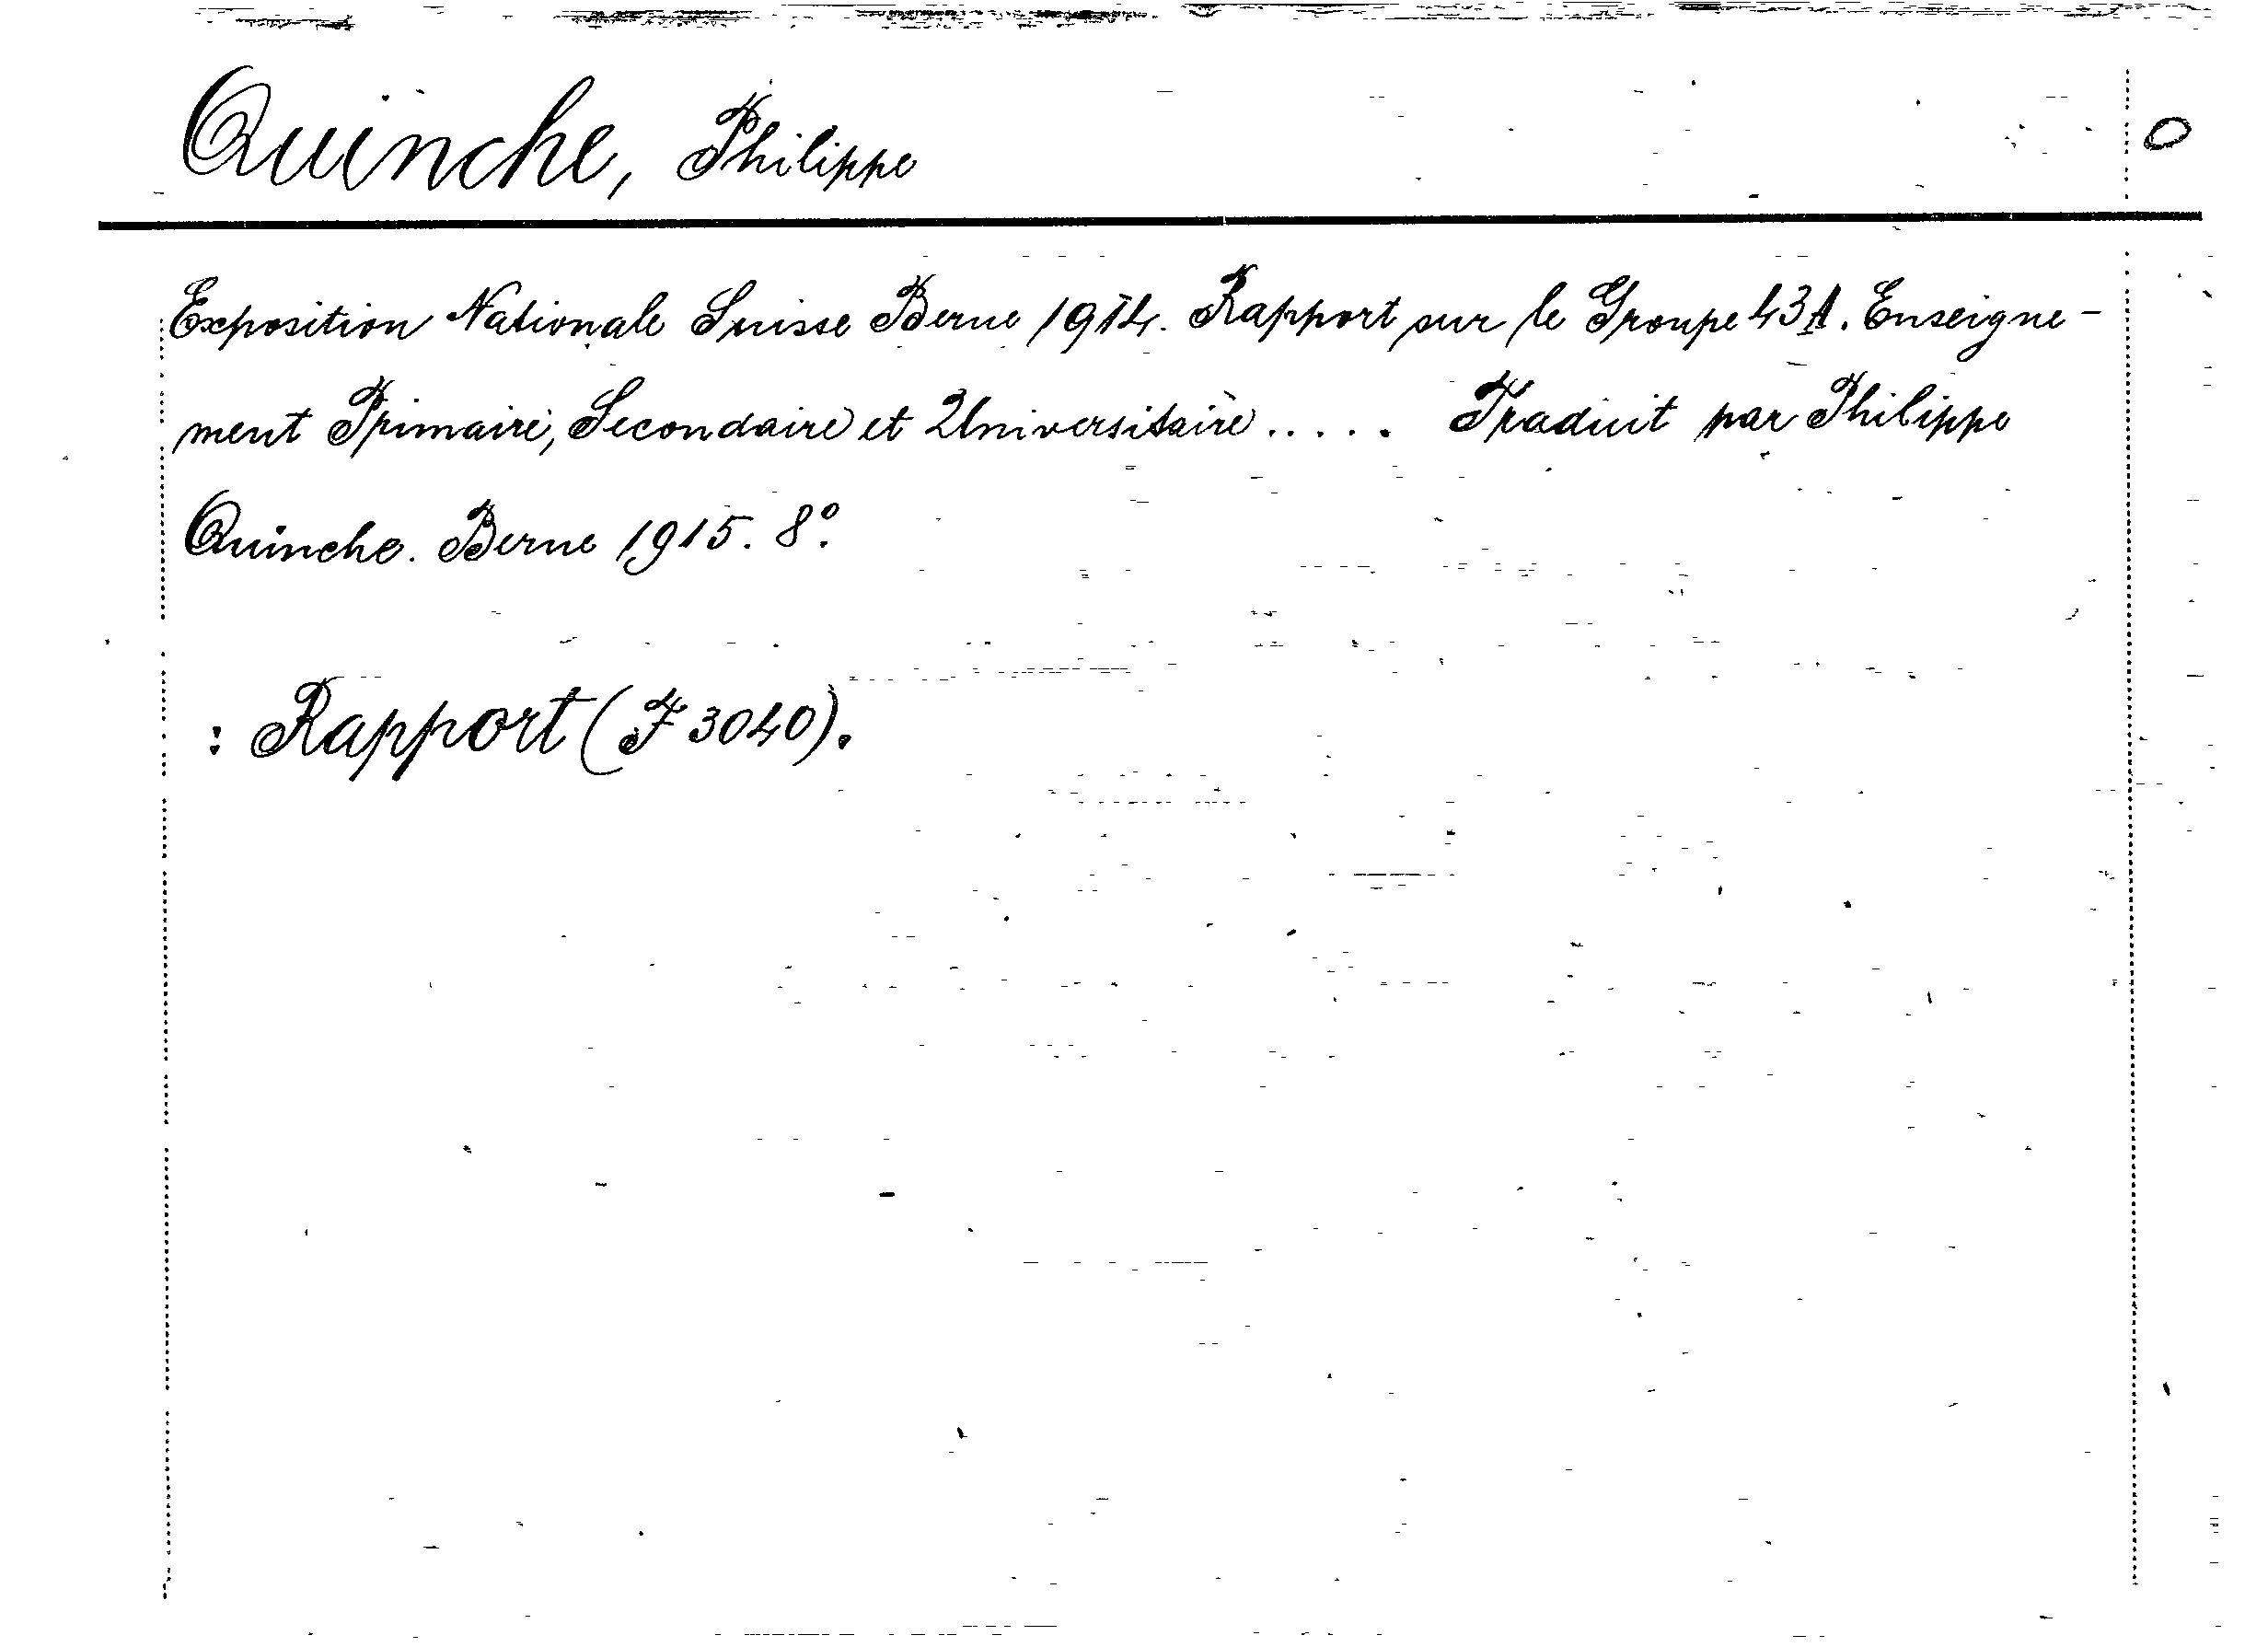 Quinche, Philippe
O
Exposition Nationale Suisse Berne 1914. Rapport sur le Groupe 43A. Enseigne-
ment Primaire, Secondaire et Universitaire ..... Traduit par Philippe
Quinche. Berne 1915. 8°.
: Rapport (F 3040).